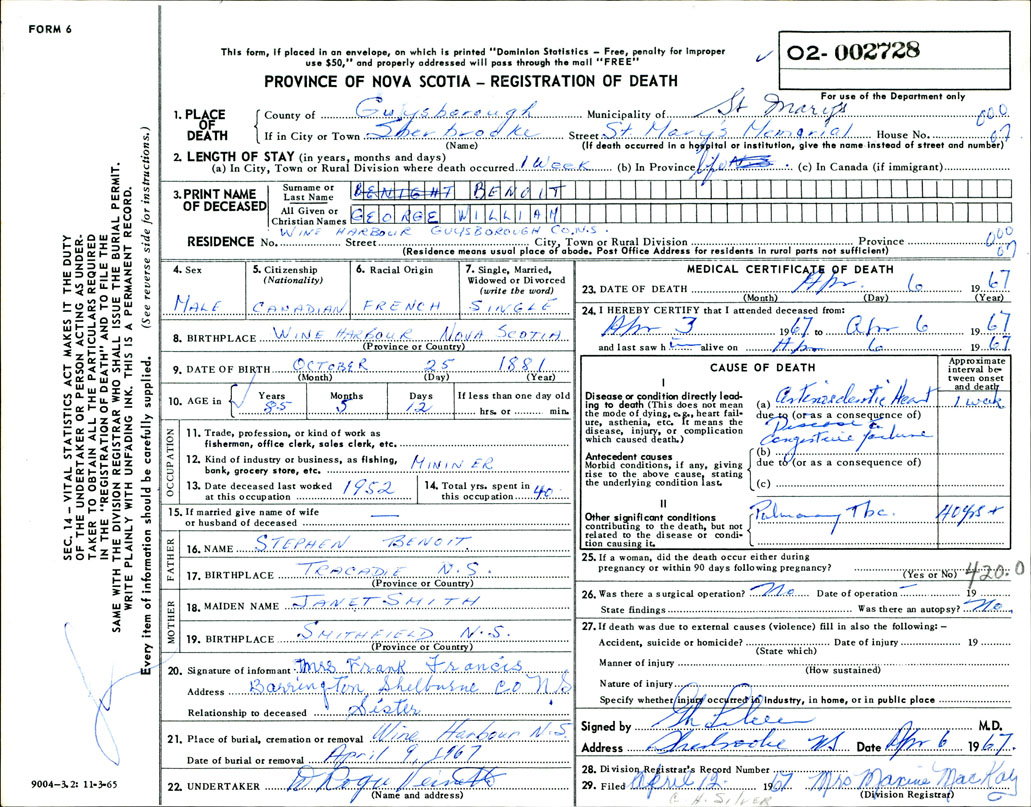 FORM 6
This form, if placed in an envelope, on which is printed "Dominion Statistics – Free, penalty for improper
use $50," and properly addressed will pass through the mail "FREE"
02- 002728
PROVINCE OF NOVA SCOTIA – REGISTRATION OF DEATH
For use of the Department only
1. PLACE OF DEATH
County of Guysborough Municipality of St Marys 000
If in City or Town Sherbrooke Street St. Mary's Memorial House No. 07
(Name) (If death occurred in a hospital or institution, give the name instead of street and number)
2. LENGTH OF STAY (in years, months and days)
(a) In City, Town or Rural Division where death occurred 1 Week (b) In Province (c) In Canada (if immigrant)
3. PRINT NAME OF DECEASED
Surname or Last Name BENIGHT BENOIT
All Given or Christian Names GEORGE WILLIAM
WINE HARBOUR GUYSBOROUGH CO. N.S.
RESIDENCE No. Street City, Town or Rural Division Province 000
(Residence means usual place of abode. Post Office Address for residents in rural parts not sufficient) 07
SEC. 14 – VITAL STATISTICS ACT MAKES IT THE DUTY
OF THE UNDERTAKER OR PERSON ACTING AS UNDER-
TAKER TO OBTAIN ALL THE PARTICULARS REQUIRED
IN THE "REGISTRATION OF DEATH" AND TO FILE THE
SAME WITH THE DIVISION REGISTRAR WHO SHALL ISSUE THE BURIAL PERMIT.
WRITE PLAINLY WITH UNFADING INK. THIS IS A PERMANENT RECORD.
Every item of information should be carefully supplied. (See reverse side for instructions.)
4. Sex
MALE
5. Citizenship
(Nationality)
CANADIAN
6. Racial Origin
FRENCH
7. Single, Married,
Widowed or Divorced
(write the word)
SINGLE
8. BIRTHPLACE WINE HARBOUR NOVA SCOTIA
(Province or Country)
9. DATE OF BIRTH OCTOBER 25 1881
(Month) (Day) (Year)
10. AGE in
Years Months Days If less than one day old
85 5 12 hrs. or min.
OCCUPATION
11. Trade, profession, or kind of work as
fisherman, office clerk, sales clerk, etc.
12. Kind of industry or business, as fishing,
bank, grocery store, etc. MININER
13. Date deceased last worked
at this occupation 1952
14. Total yrs. spent in
this occupation 40
15. If married give name of wife
or husband of deceased —
FATHER
16. NAME STEPHEN BENOIT
17. BIRTHPLACE TRACADIE N.S.
(Province or Country)
MOTHER
18. MAIDEN NAME JANET SMITH
19. BIRTHPLACE SMITHFIELD N.S.
(Province or Country)
20. Signature of informant Mrs Frank Francis
Address Barrington Shelburne Co N S
Relationship to deceased Sister
21. Place of burial, cremation or removal Wine Harbour N.S.
Date of burial or removal April 9, 1967
22. UNDERTAKER
(Name and address)
MEDICAL CERTIFICATE OF DEATH
23. DATE OF DEATH Apr. 6 1967
(Month) (Day) (Year)
24. I HEREBY CERTIFY that I attended deceased from:
Apr 3 1967 to Apr 6 1967
and last saw h alive on Apr 6 1967
CAUSE OF DEATH
Approximate
interval be-
tween onset
and death
I
Disease or condition directly lead-
ing to death (This does not mean
the mode of dying, e.g., heart fail-
ure, asthenia, etc. It means the
disease, injury, or complication
which caused death.)
(a) Heart 1 week
due to (or as a consequence of)
Disease
Congestive failure
Antecedent causes
Morbid conditions, if any, giving
rise to the above cause, stating
the underlying condition last.
(b)
due to (or as a consequence of)
(c)
II
Other significant conditions
contributing to the death, but not
related to the disease or condi-
tion causing it.
Pulmonary Tbc. 40 yrs +
25. If a woman, did the death occur either during
pregnancy or within 90 days following pregnancy?
(Yes or No) 420.0
26. Was there a surgical operation? No Date of operation – 19
State findings Was there an autopsy? No
27. If death was due to external causes (violence) fill in also the following: –
Accident, suicide or homicide? Date of injury 19
(State which)
Manner of injury
(How sustained)
Nature of injury
Specify whether injury occurred in industry, in home, or in public place
Signed by M.D.
Address Sherbrooke NS Date Apr 6 1967
28. Division Registrar's Record Number
29. Filed April 12 1967 Mrs Maxine MacKay
(Division Registrar)
C H. SILVER
9004-3.2: 11-3-65